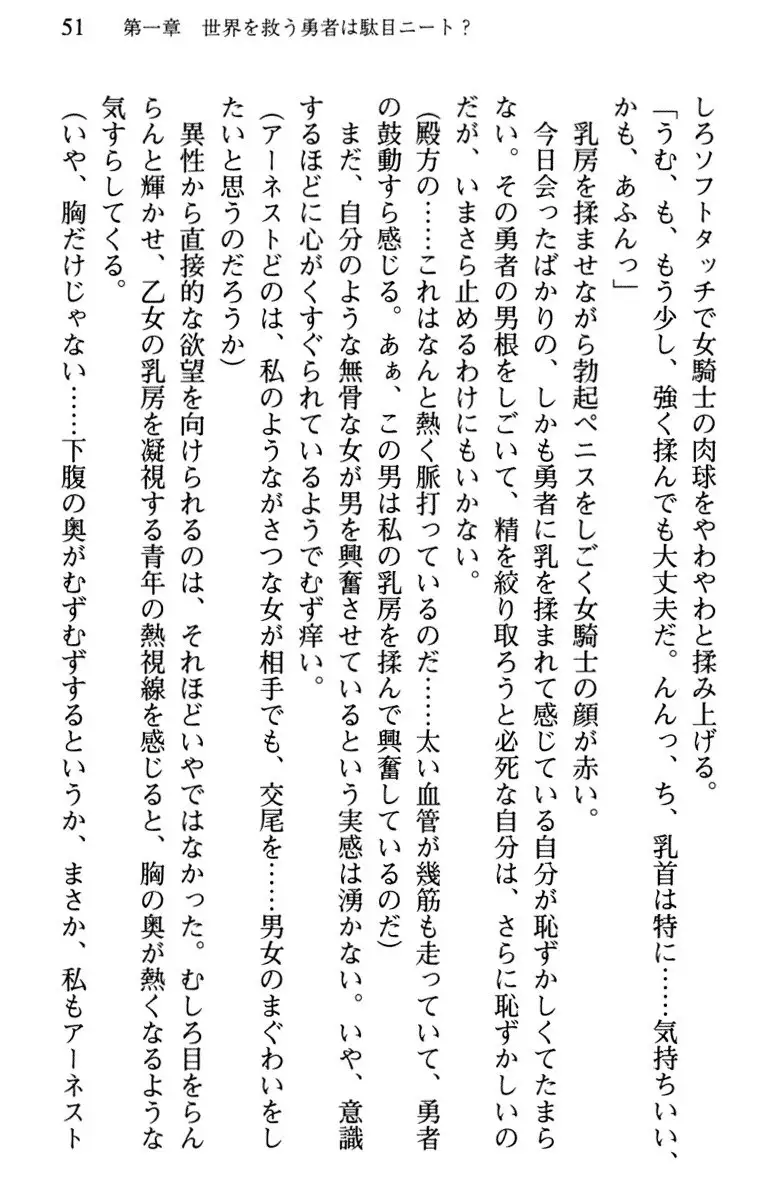 51　第一章　世界を救う勇者は駄目ニート？
しろソフトタッチで女騎士の肉球をやわやわと揉み上げる。
「うむ、も、もう少し、強く揉んでも大丈夫だ。んんっ、ち、乳首は特に……気持ちいい、
かも、あふんっ」
乳房を揉ませながら勃起ペニスをしごく女騎士の顔が赤い。
今日会ったばかりの、しかも勇者に乳を揉まれて感じている自分が恥ずかしくてたまら
ない。その勇者の男根をしごいて、精を絞り取ろうと必死な自分は、さらに恥ずかしいの
だが、いまさら止めるわけにもいかない。
（殿方の……これはなんと熱く脈打っているのだ……太い血管が幾筋も走っていて、勇者
の鼓動すら感じる。あぁ、この男は私の乳房を揉んで興奮しているのだ）
まだ、自分のような無骨な女が男を興奮させているという実感は湧かない。いや、意識
するほどに心がくすぐられているようでむず痒い。
（アーネストどのは、私のようながさつな女が相手でも、交尾を……男女のまぐわいをし
たいと思うのだろうか）
異性から直接的な欲望を向けられるのは、それほどいやではなかった。むしろ目をらん
らんと輝かせ、乙女の乳房を凝視する青年の熱視線を感じると、胸の奥が熱くなるような
気すらしてくる。
（いや、胸だけじゃない……下腹の奥がむずむずするというか、まさか、私もアーネスト